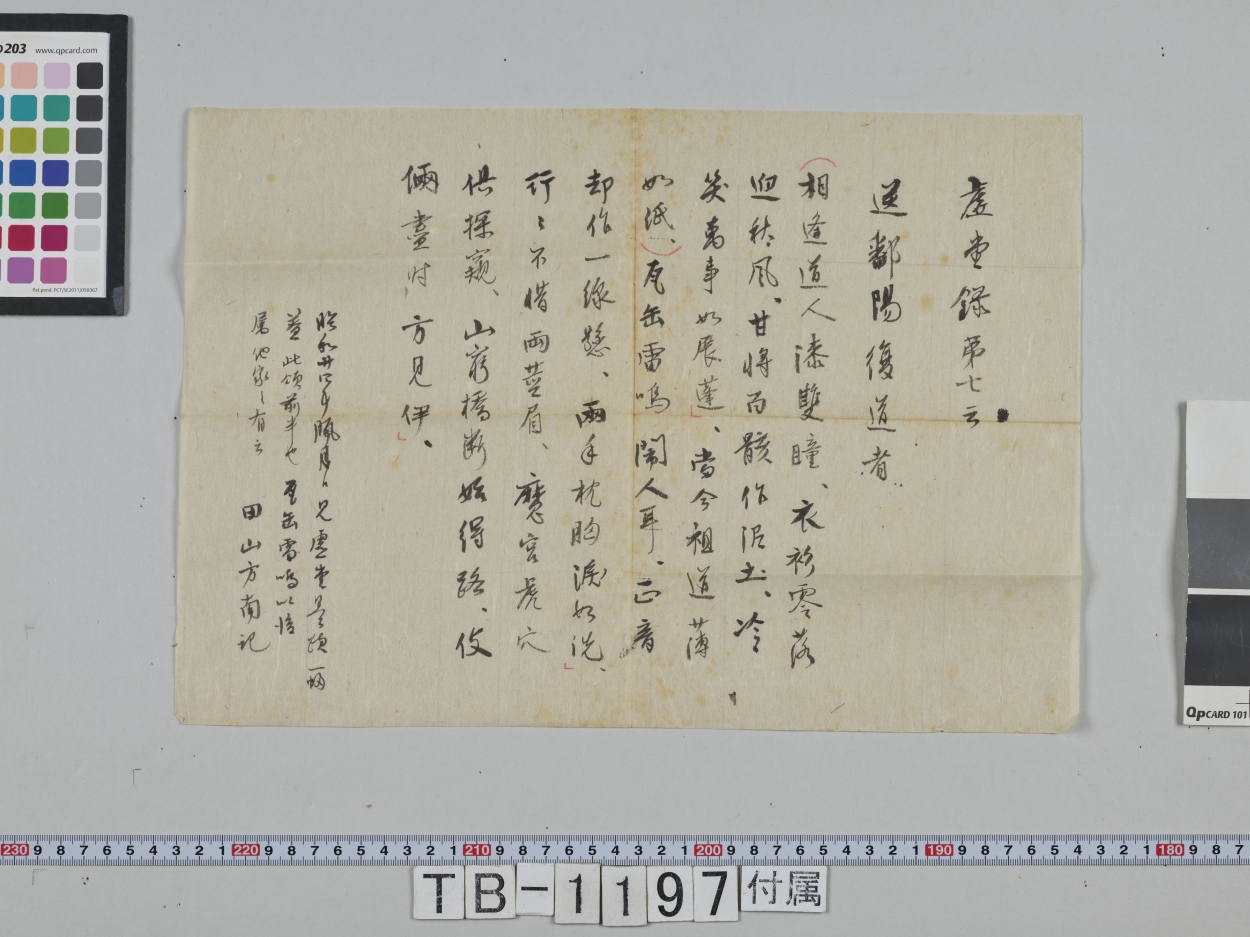 虚堂録第七云
送鄱陽復道者
相逢道人漆雙瞳、衣衫零落
迎秋風、甘将百骸作泥土、冷
笑萬事如展蓬、當今祖道薄
如紙、瓦缶雷鳴鬧人耳、正音
却作一線懸、両手枕胸涙如洗、
行〻不惜両莖眉、魔宮虎穴
供探窺、山窮橋断始得路、伎
倆盡时方見伊、
昭和廿四年臘月 兄虚堂墨蹟一幅
蓋此頌前半也 瓦缶雷鳴以
属他家〻有云
田山方南記
D203
www.qpcard.com
QPCARD 101
230 9 8 7 6 5 4 3 2 1 220 9 8 7 6 5 4 3 2 1 210 9 8 7 6 5 4 3 2 1 200 9 8 7 6 5 4 3 2 1 190 9 8 7 6 5 4 3 2 1 180 9 8 7
TB-1197付属